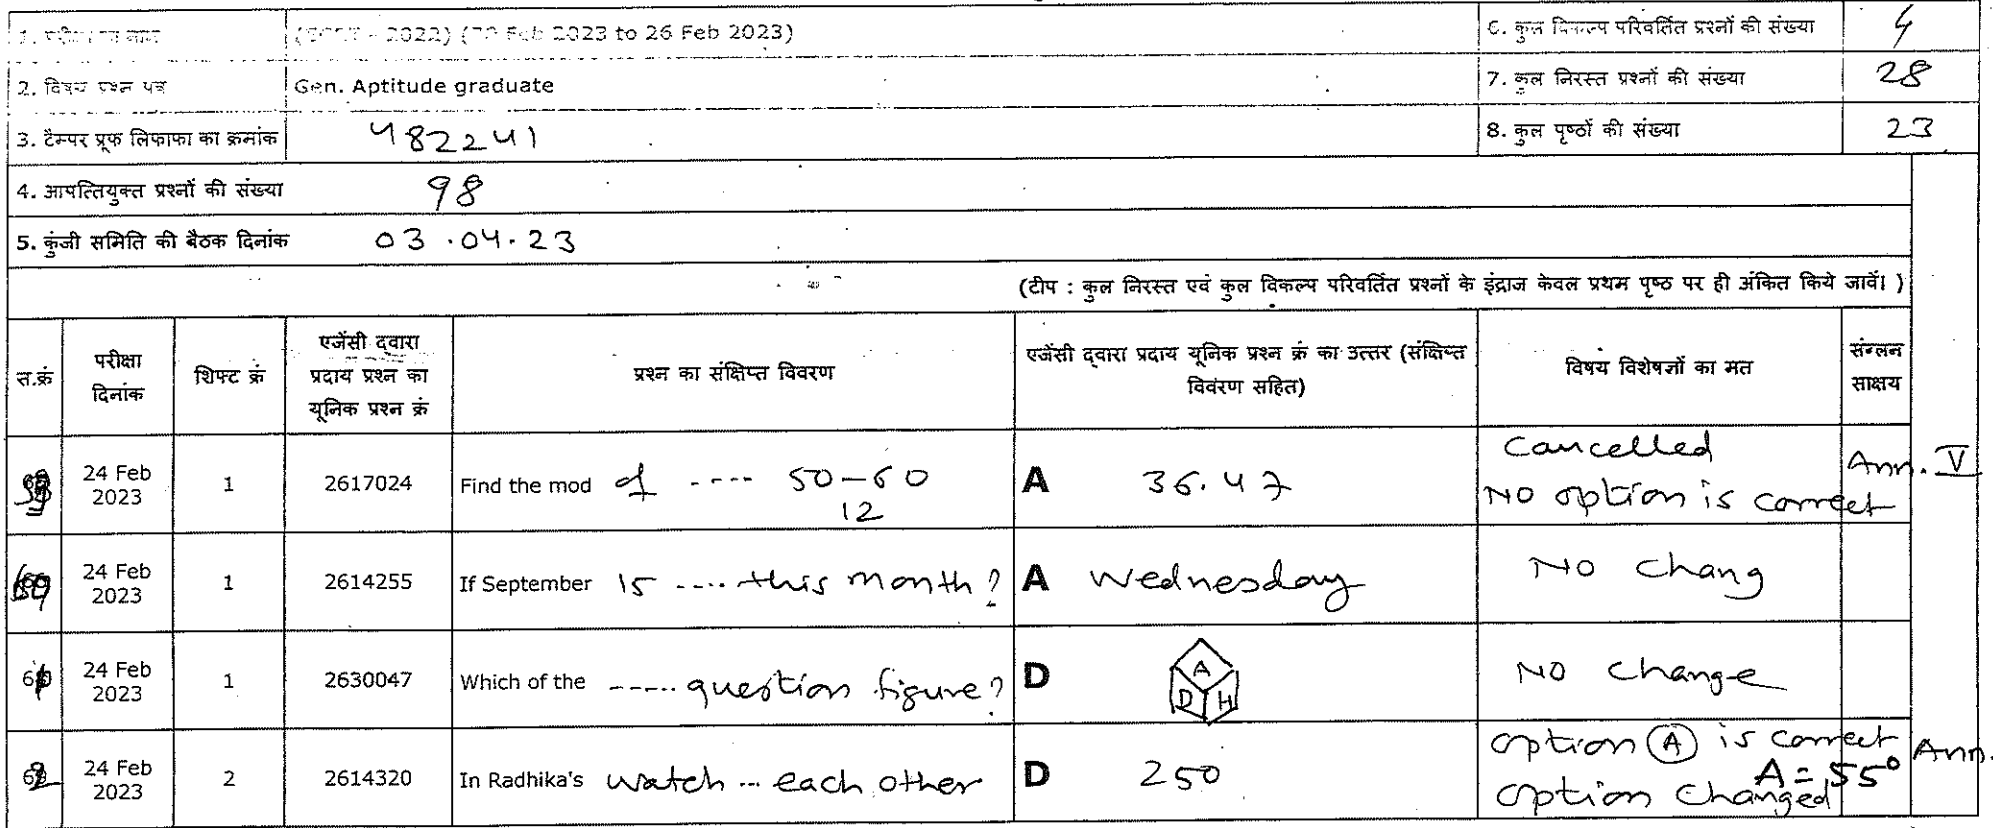 (         - 2022) (20 Feb 2023 to 26 Feb 2023)
6. कुल विकल्प परिवर्तित प्रश्नों की संख्या 4
2. विषय प्रश्न पत्र Gen. Aptitude graduate
7. कुल निरस्त प्रश्नों की संख्या 28
3. टैम्पर प्रूफ लिफाफा का क्रमांक 482241
8. कुल पृष्ठों की संख्या 23
4. आपत्तियुक्त प्रश्नों की संख्या 98
5. कुंजी समिति की बैठक दिनांक 03.04.23
(टीप : कुल निरस्त एवं कुल विकल्प परिवर्तित प्रश्नों के इंद्राज केवल प्रथम पृष्ठ पर ही अंकित किये जावें। )
स.क्रं
परीक्षा
दिनांक
शिफ्ट क्रं
एजेंसी द्वारा
प्रदाय प्रश्न का
यूनिक प्रश्न क्रं
प्रश्न का संक्षिप्त विवरण
एजेंसी द्वारा प्रदाय यूनिक प्रश्न क्रं का उत्तर (संक्षिप्त
विवरण सहित)
विषय विशेषज्ञों का मत
संलग्न
साक्ष्य
24 Feb
2023
1
2617024
Find the mod of ---- 50-60
12
A 36.47
Cancelled
NO option is correct
Ann. V
24 Feb
2023
1
2614255
If September 15 .... this month?
A Wednesday
NO chang
24 Feb
2023
1
2630047
Which of the ----- question figure?
D
A
D H
NO change
24 Feb
2023
2
2614320
In Radhika's watch ... each other
D 250
option A is correct
A = 55°
option changed
Ann.